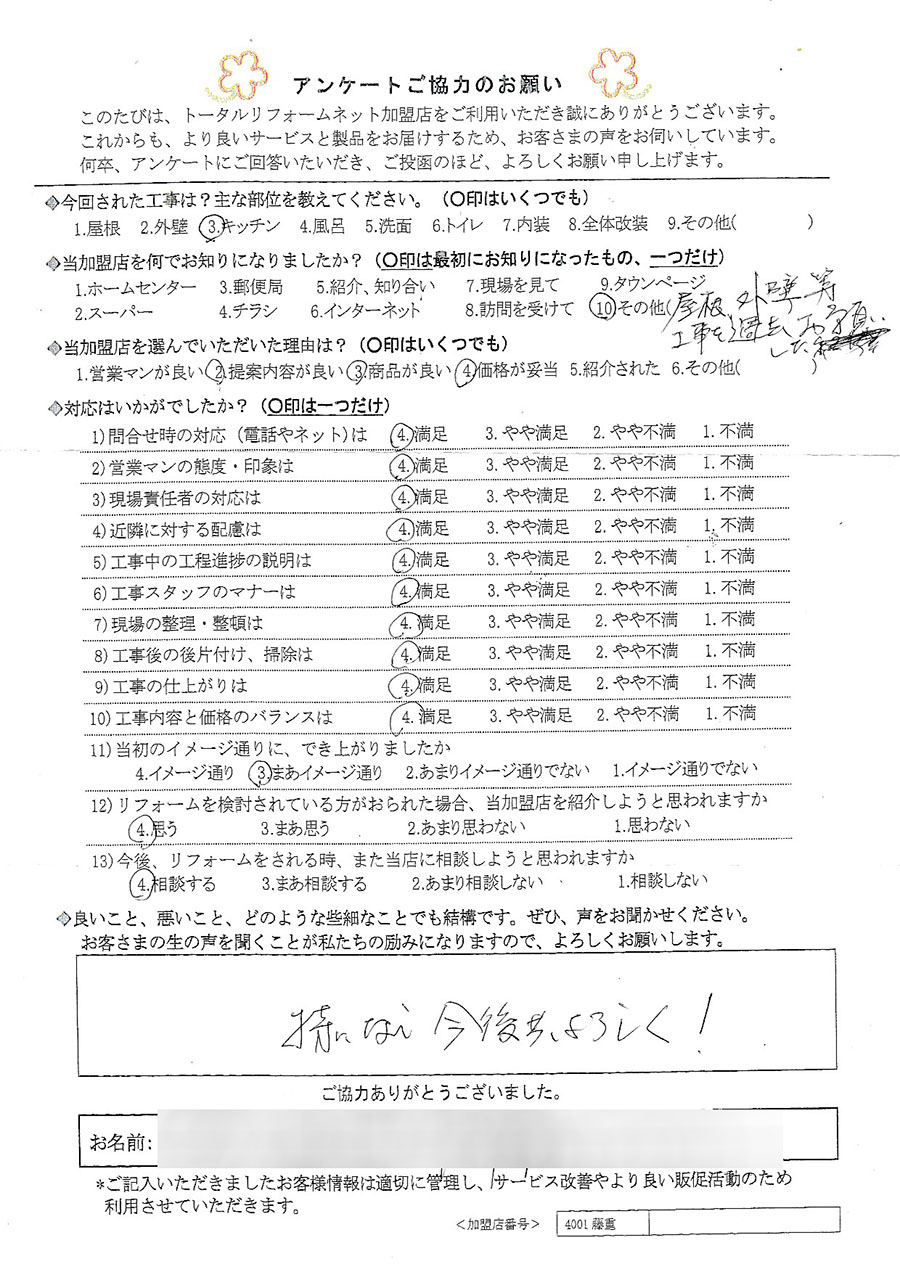 アンケートご協力のお願い
このたびは、トータルリフォームネット加盟店をご利用いただき誠にありがとうございます。
これからも、より良いサービスと製品をお届けするため、お客さまの声をお伺いしています。
何卒、アンケートにご回答いたいだき、ご投函のほど、よろしくお願い申し上げます。
◈今回された工事は？主な部位を教えてください。（〇印はいくつでも）
1.屋根 2.外壁 3.キッチン 4.風呂 5.洗面 6.トイレ 7.内装 8.全体改装 9.その他( )
◈当加盟店を何でお知りになりましたか？（〇印は最初にお知りになったもの、一つだけ）
1.ホームセンター 3.郵便局 5.紹介、知り合い 7.現場を見て 9.タウンページ
2.スーパー 4.チラシ 6.インターネット 8.訪問を受けて 10.その他(屋根、外壁等
工事を過去お願い
した )
◈当加盟店を選んでいただいた理由は？（〇印はいくつでも）
1.営業マンが良い 2.提案内容が良い 3.商品が良い 4.価格が妥当 5.紹介された 6.その他( )
◈対応はいかがでしたか？（〇印は一つだけ）
1)問合せ時の対応（電話やネット)は 4.満足 3.やや満足 2.やや不満 1.不満
2)営業マンの態度・印象は 4.満足 3.やや満足 2.やや不満 1.不満
3)現場責任者の対応は 4.満足 3.やや満足 2.やや不満 1.不満
4)近隣に対する配慮は 4.満足 3.やや満足 2.やや不満 1.不満
5)工事中の工程進捗の説明は 4.満足 3.やや満足 2.やや不満 1.不満
6)工事スタッフのマナーは 4.満足 3.やや満足 2.やや不満 1.不満
7)現場の整理・整頓は 4.満足 3.やや満足 2.やや不満 1.不満
8)工事後の後片付け、掃除は 4.満足 3.やや満足 2.やや不満 1.不満
9)工事の仕上がりは 4.満足 3.やや満足 2.やや不満 1.不満
10)工事内容と価格のバランスは 4.満足 3.やや満足 2.やや不満 1.不満
11)当初のイメージ通りに、でき上がりましたか
4.イメージ通り 3.まあイメージ通り 2.あまりイメージ通りでない 1.イメージ通りでない
12)リフォームを検討されている方がおられた場合、当加盟店を紹介しようと思われますか
4.思う 3.まあ思う 2.あまり思わない 1.思わない
13)今後、リフォームをされる時、また当店に相談しようと思われますか
4.相談する 3.まあ相談する 2.あまり相談しない 1.相談しない
◈良いこと、悪いこと、どのような些細なことでも結構です。ぜひ、声をお聞かせください。
お客さまの生の声を聞くことが私たちの励みになりますので、よろしくお願いします。
特になし 今後共よろしく！
ご協力ありがとうございました。
お名前:
*ご記入いただきましたお客様情報は適切に管理し、サービス改善やより良い販促活動のため
利用させていただきます。
＜加盟店番号＞ 4001藤重